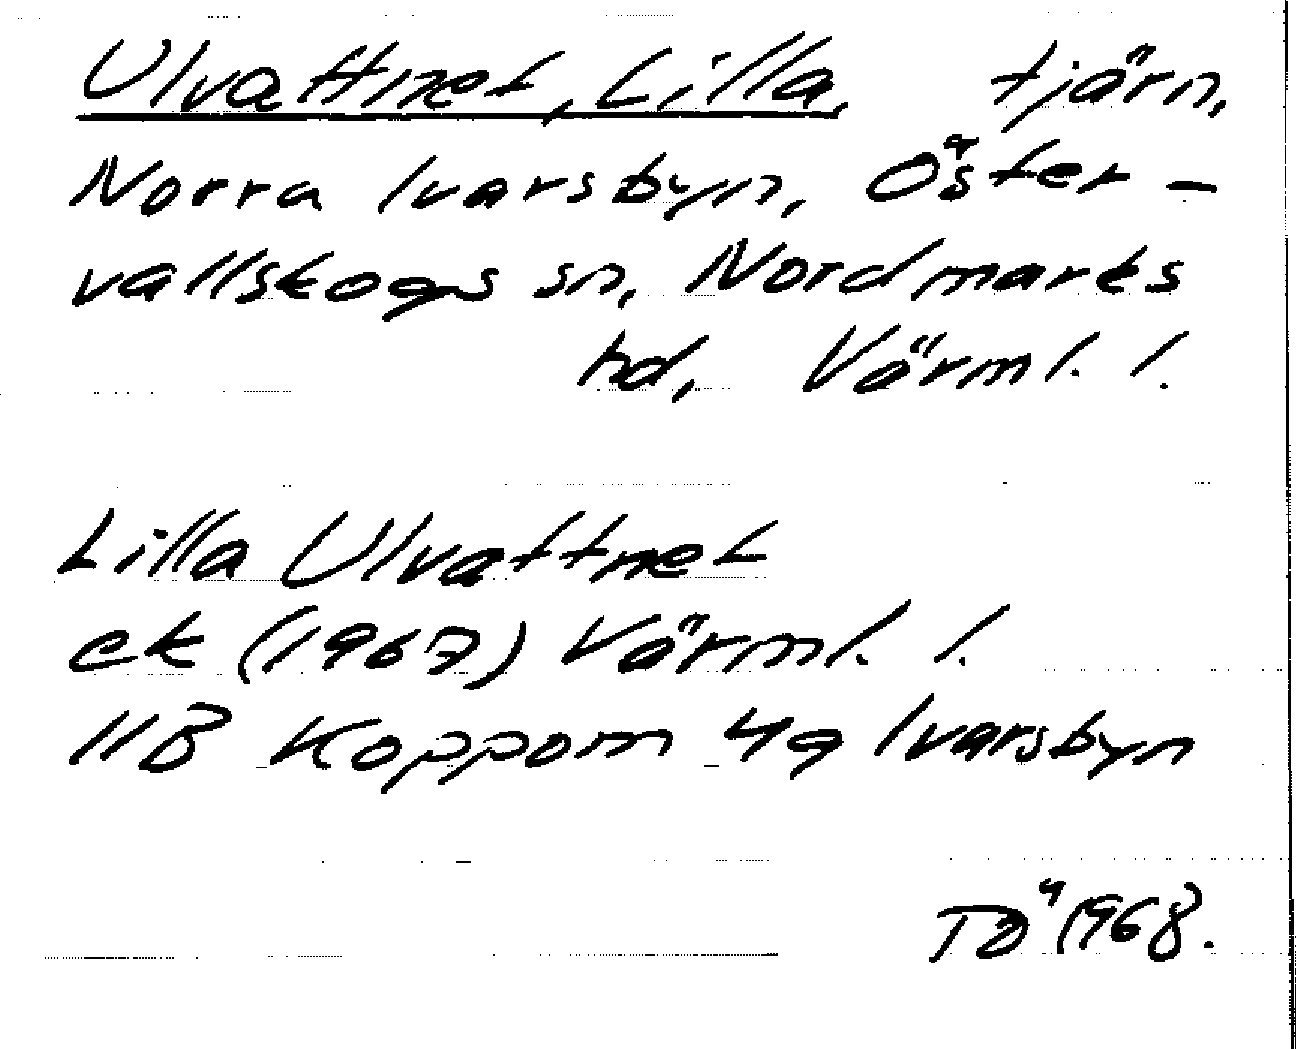 Ulvattnet, Lilla, tjärn,
Norra Ivarsbyn, Öster-
vallskogs sn, Nordmarks
hd, Värml. l.
Lilla Ulvattnet
ek (1967) Värml. l.
11B Koppom 4a Ivarsbyn
TÖ 1968.